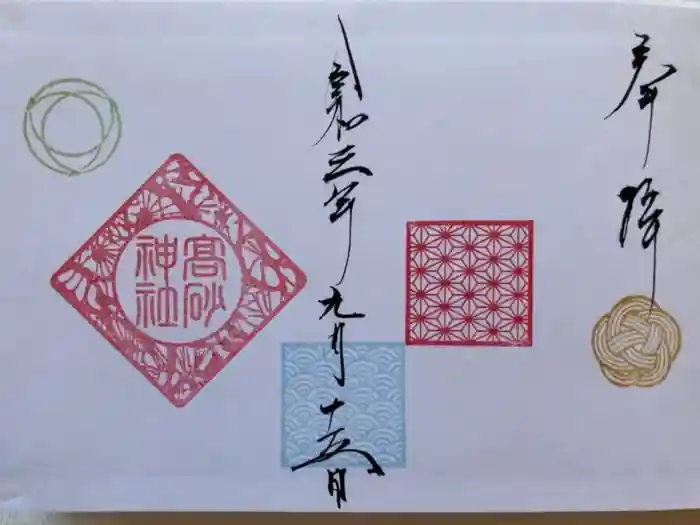 奉拝
令和三年九月十五日
髙砂
神社